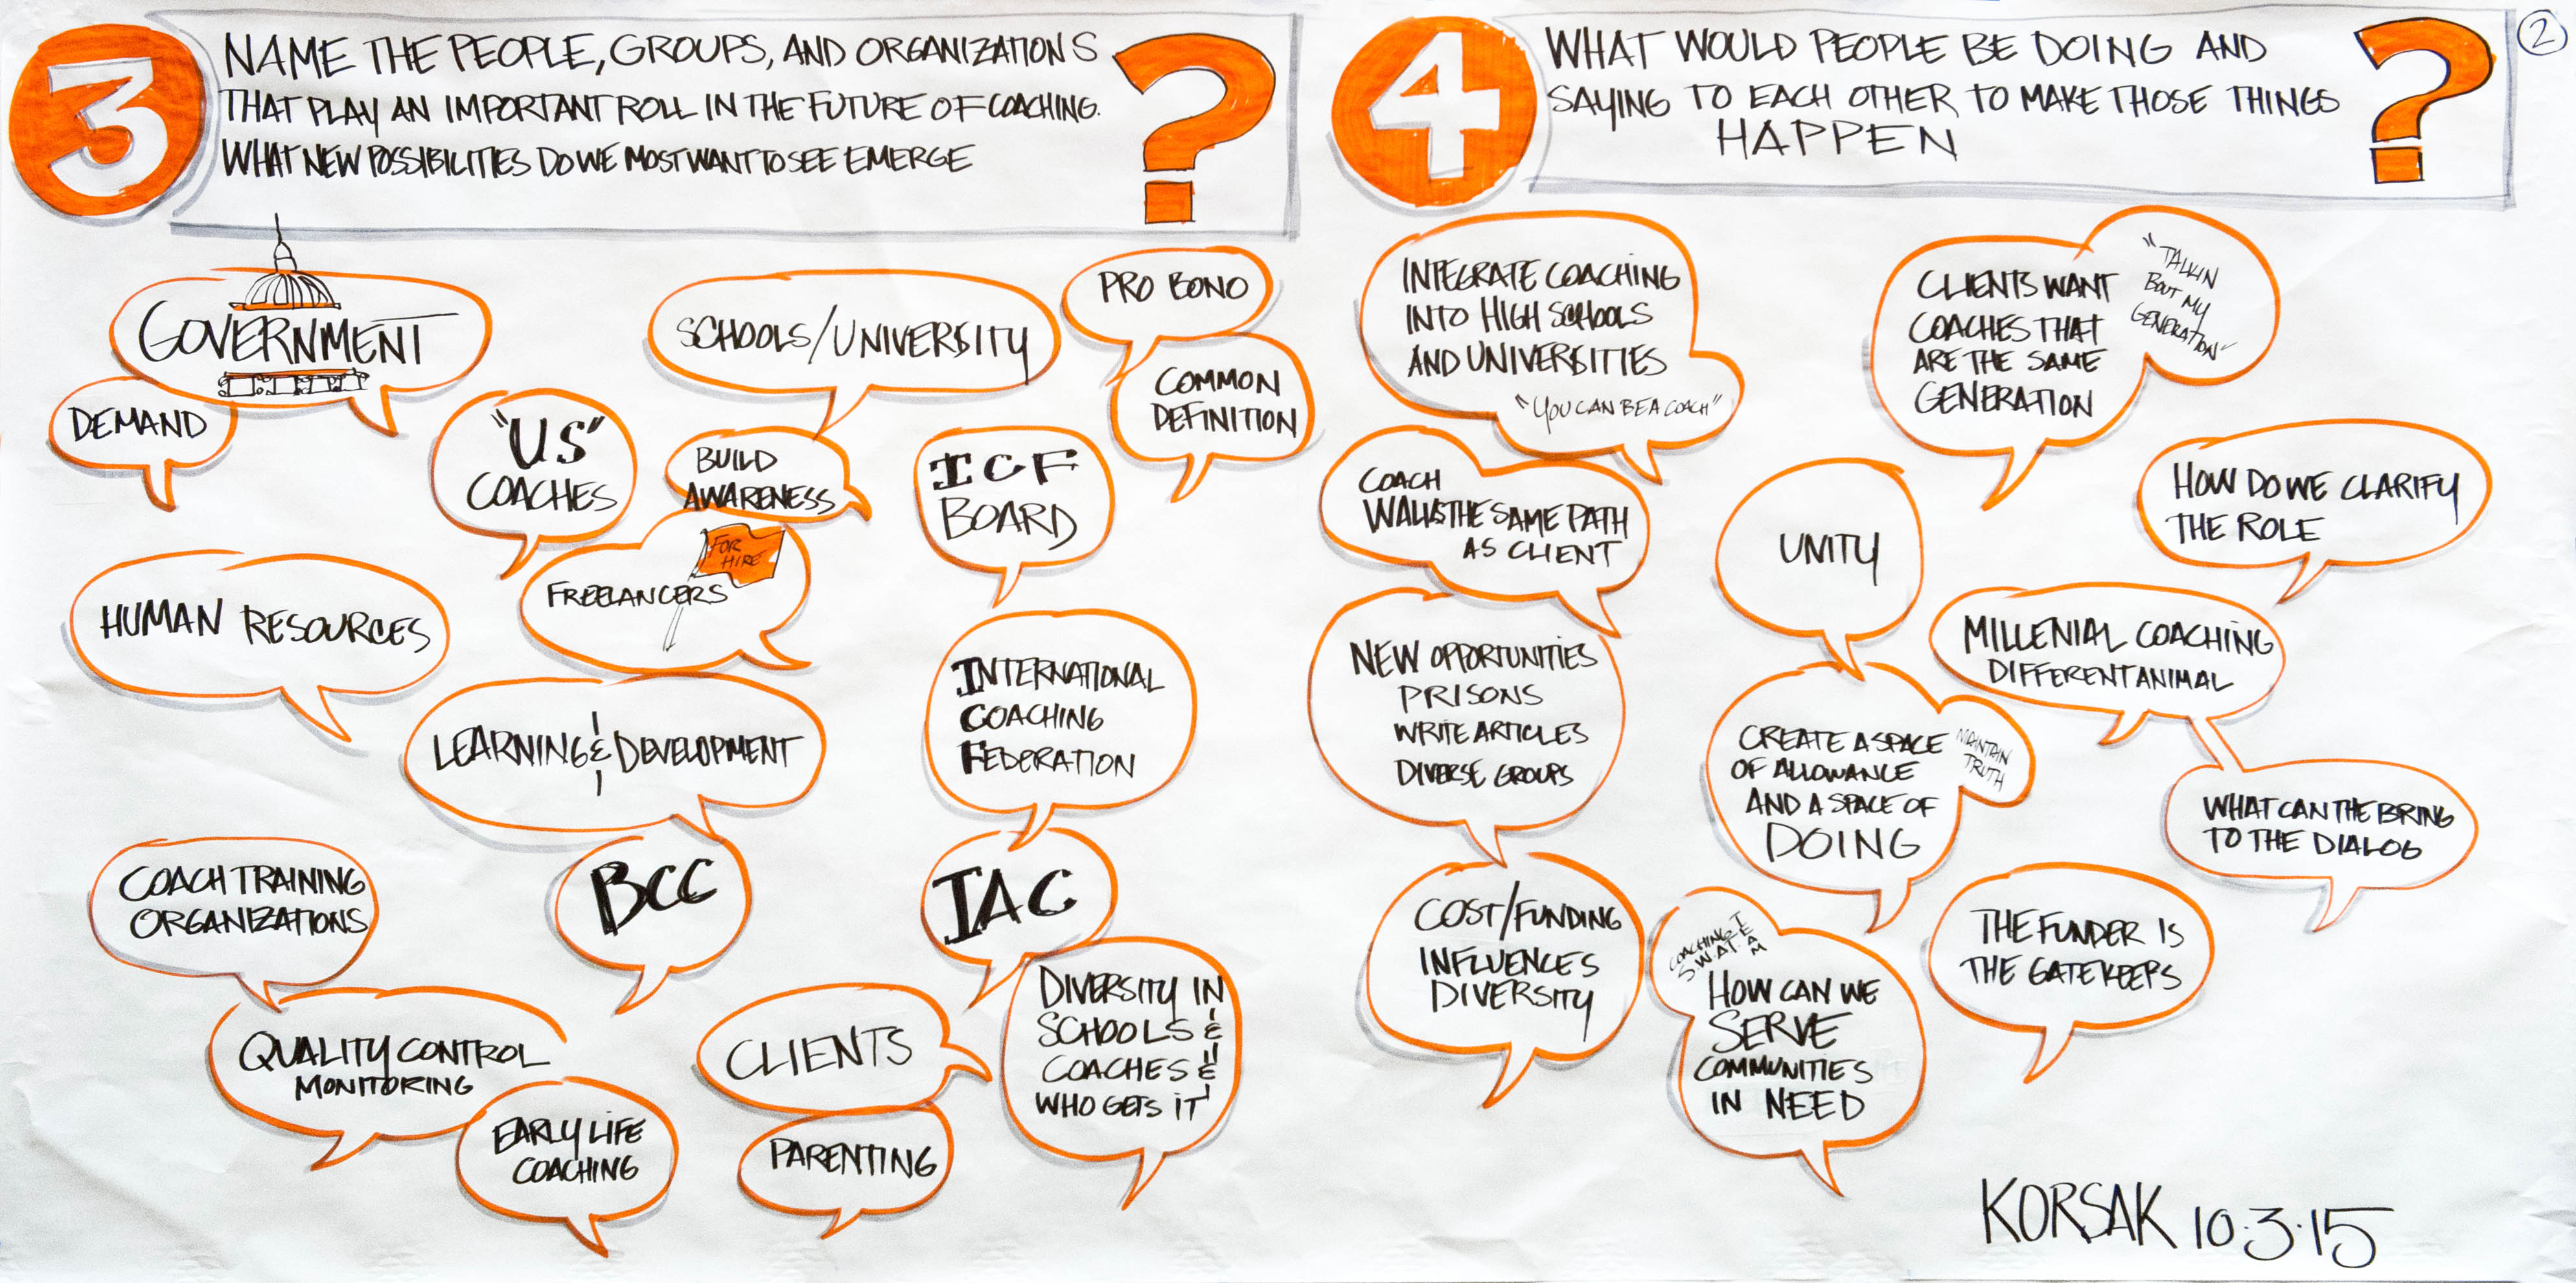 3
NAME THE PEOPLE, GROUPS, AND ORGANIZATIONS
THAT PLAY AN IMPORTANT ROLL IN THE FUTURE OF COACHING.
WHAT NEW POSSIBILITIES DO WE MOST WANT TO SEE EMERGE
?
GOVERNMENT
DEMAND
"US"
COACHES
SCHOOLS/UNIVERSITY
BUILD
AWARENESS
PRO BONO
COMMON
DEFINITION
ICF
BOARD
HUMAN RESOURCES
FOR
HIRE
FREELANCERS
LEARNING & DEVELOPMENT
INTERNATIONAL
COACHING
FEDERATION
COACH TRAINING
ORGANIZATIONS
BCC
IAC
QUALITY CONTROL
MONITORING
EARLY LIFE
COACHING
CLIENTS
PARENTING
DIVERSITY IN
SCHOOLS &
COACHES &
WHO GETS IT
4
WHAT WOULD PEOPLE BE DOING AND
SAYING TO EACH OTHER TO MAKE THOSE THINGS
HAPPEN
?
2
INTEGRATE COACHING
INTO HIGH SCHOOLS
AND UNIVERSITIES
"YOU CAN BE A COACH"
COACH
WALKS THE SAME PATH
AS CLIENT
NEW OPPORTUNITIES
PRISONS
WRITE ARTICLES
DIVERSE GROUPS
COST/FUNDING
INFLUENCES
DIVERSITY
CLIENTS WANT
COACHES THAT
ARE THE SAME
GENERATION
"TALKIN
BOUT MY
GENERATION"
UNITY
HOW DO WE CLARIFY
THE ROLE
MILLENIAL COACHING
DIFFERENT ANIMAL
CREATE A SPACE
OF ALLOWANCE
AND A SPACE OF
DOING
MAINTAIN
TRUTH
WHAT CAN THE BRING
TO THE DIALOG
COACHING
S.W.A.T.
TEAM
HOW CAN WE
SERVE
COMMUNITIES
IN NEED
THE FUNDER IS
THE GATEKEEPS
KORSAK 10.3.15